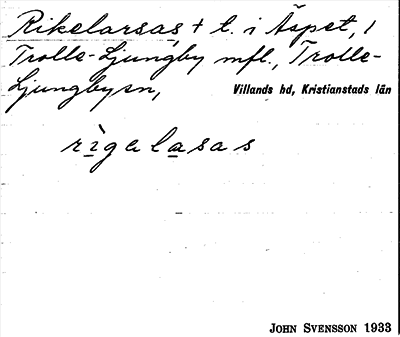 Rikelarsas, + t. i Äspet, 1
Trolle-Ljungby mfl., Trolle-
Ljungbysn,
Villands hd, Kristianstads län
rìgelasas
JOHN SVENSSON 1933